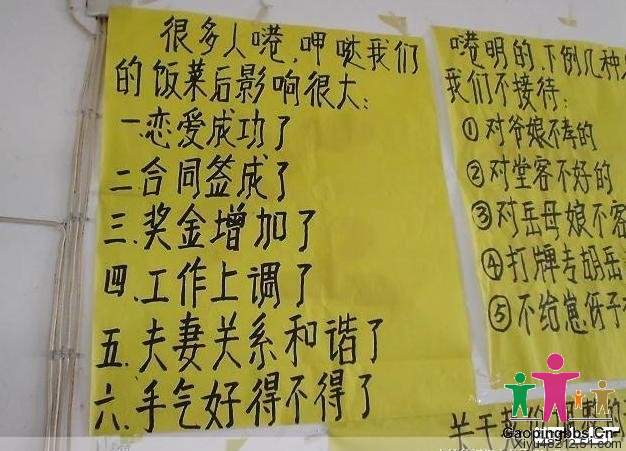 很多人,呷哒我们
的饭菜后影响很大:
一.恋爱成功了
二.合同签成了
三.奖金增加了
四.工作上调了
五.夫妻关系和谐了
六.手气好得不得了
明的,下例几种
我们不接待:
①对爷娘不孝的
②对堂客不好的
③对岳母娘不客
④打牌专胡岳
⑤不给崽伢子
关于
Gaopingbbs.Cn
Xiyu48212.51.com